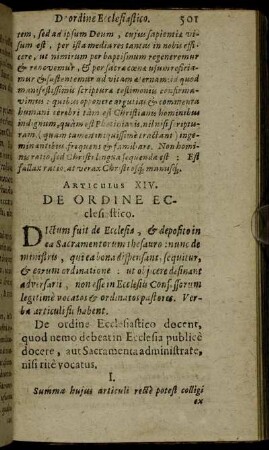 De ordine Ecclesiastico. 501
tem, sed ad ipsum Deum, cujus sapientiæ vi-
sum est, per ista media res tantas in nobis effi-
cere, ut nimirum per baptismum regeneremur
& renovemur, & per sacræ cœnæ usum reficia-
mur & sustentemur ad vitam æternam: id quod
manifestissimis scripturæ testimoniis confirma-
vimus: quibus opponere argutias & commenta
humani cerebri tàm est Christiano homine
indignum, quàm est Photinianis, nil nisi scriptu-
ram (quam tamen iniquissimè tractant) inge-
minantibus frequens & familiare. Non homi-
nu ratio, sed Christi lingua sequenda est: Est
fallax ratio, at verax Christo osq; manusq;.
ARTICULUS XIV.
DE ORDINE EC-
clesiastico.
Dictum fuit de Ecclesia, & deposito in
ea Sacramentorum thesauro: nunc de
ministris, qui ea bona dispensant, sequitur,
& eorum ordinatione: ut objicere desinant
adversarii, non esse in Ecclesiis Conf. ssorum
legitimè vocatos & ordinatos pastores. Ver-
ba articuli sic habent.
De ordine Ecclesiastico docent,
quod nemo debeat in Ecclesia publicè
docere, aut Sacramenta administrare,
nisi ritè vocatus.
I.
Summa hujus articuli rectè potest colligi
ex